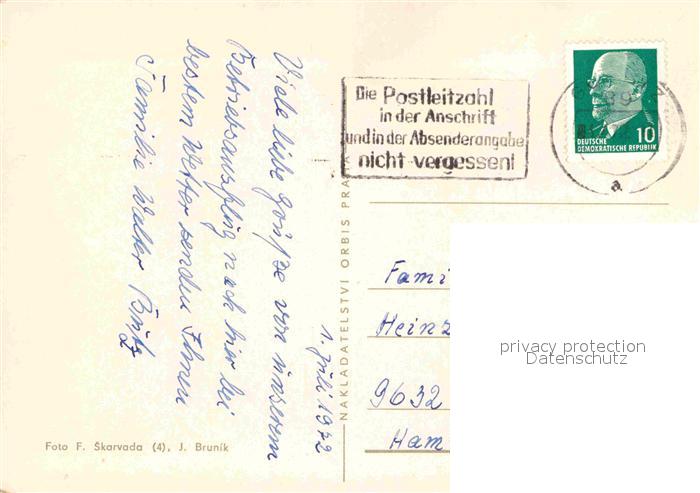 Viele liebe Grüße von unserem
Betriebsausflug nach hier bei
bestem Wetter senden Ihnen
Familie Walter
1. Juli 1972
Foto F. Škarvada (4), J. Bruník
NAKLADATELSTVÍ ORBIS PRAHA
Die Postleitzahl
in der Anschrift
und in der Absenderangabe
nicht vergessen!
a
10
DEUTSCHE
DEMOKRATISCHE REPUBLIK
Fami
Heinz
9632
Ham
privacy protection
Datenschutz